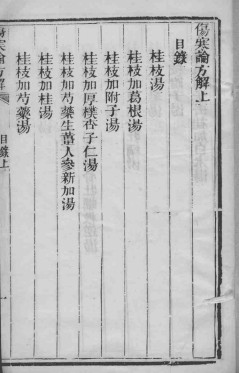 傷寒論方解上
目錄
桂枝湯
桂枝加葛根湯
桂枝加附子湯
桂枝加厚樸杏子仁湯
桂枝加芍藥生薑人參新加湯
桂枝加桂湯
桂枝加芍藥湯
傷寒論方解
目錄上